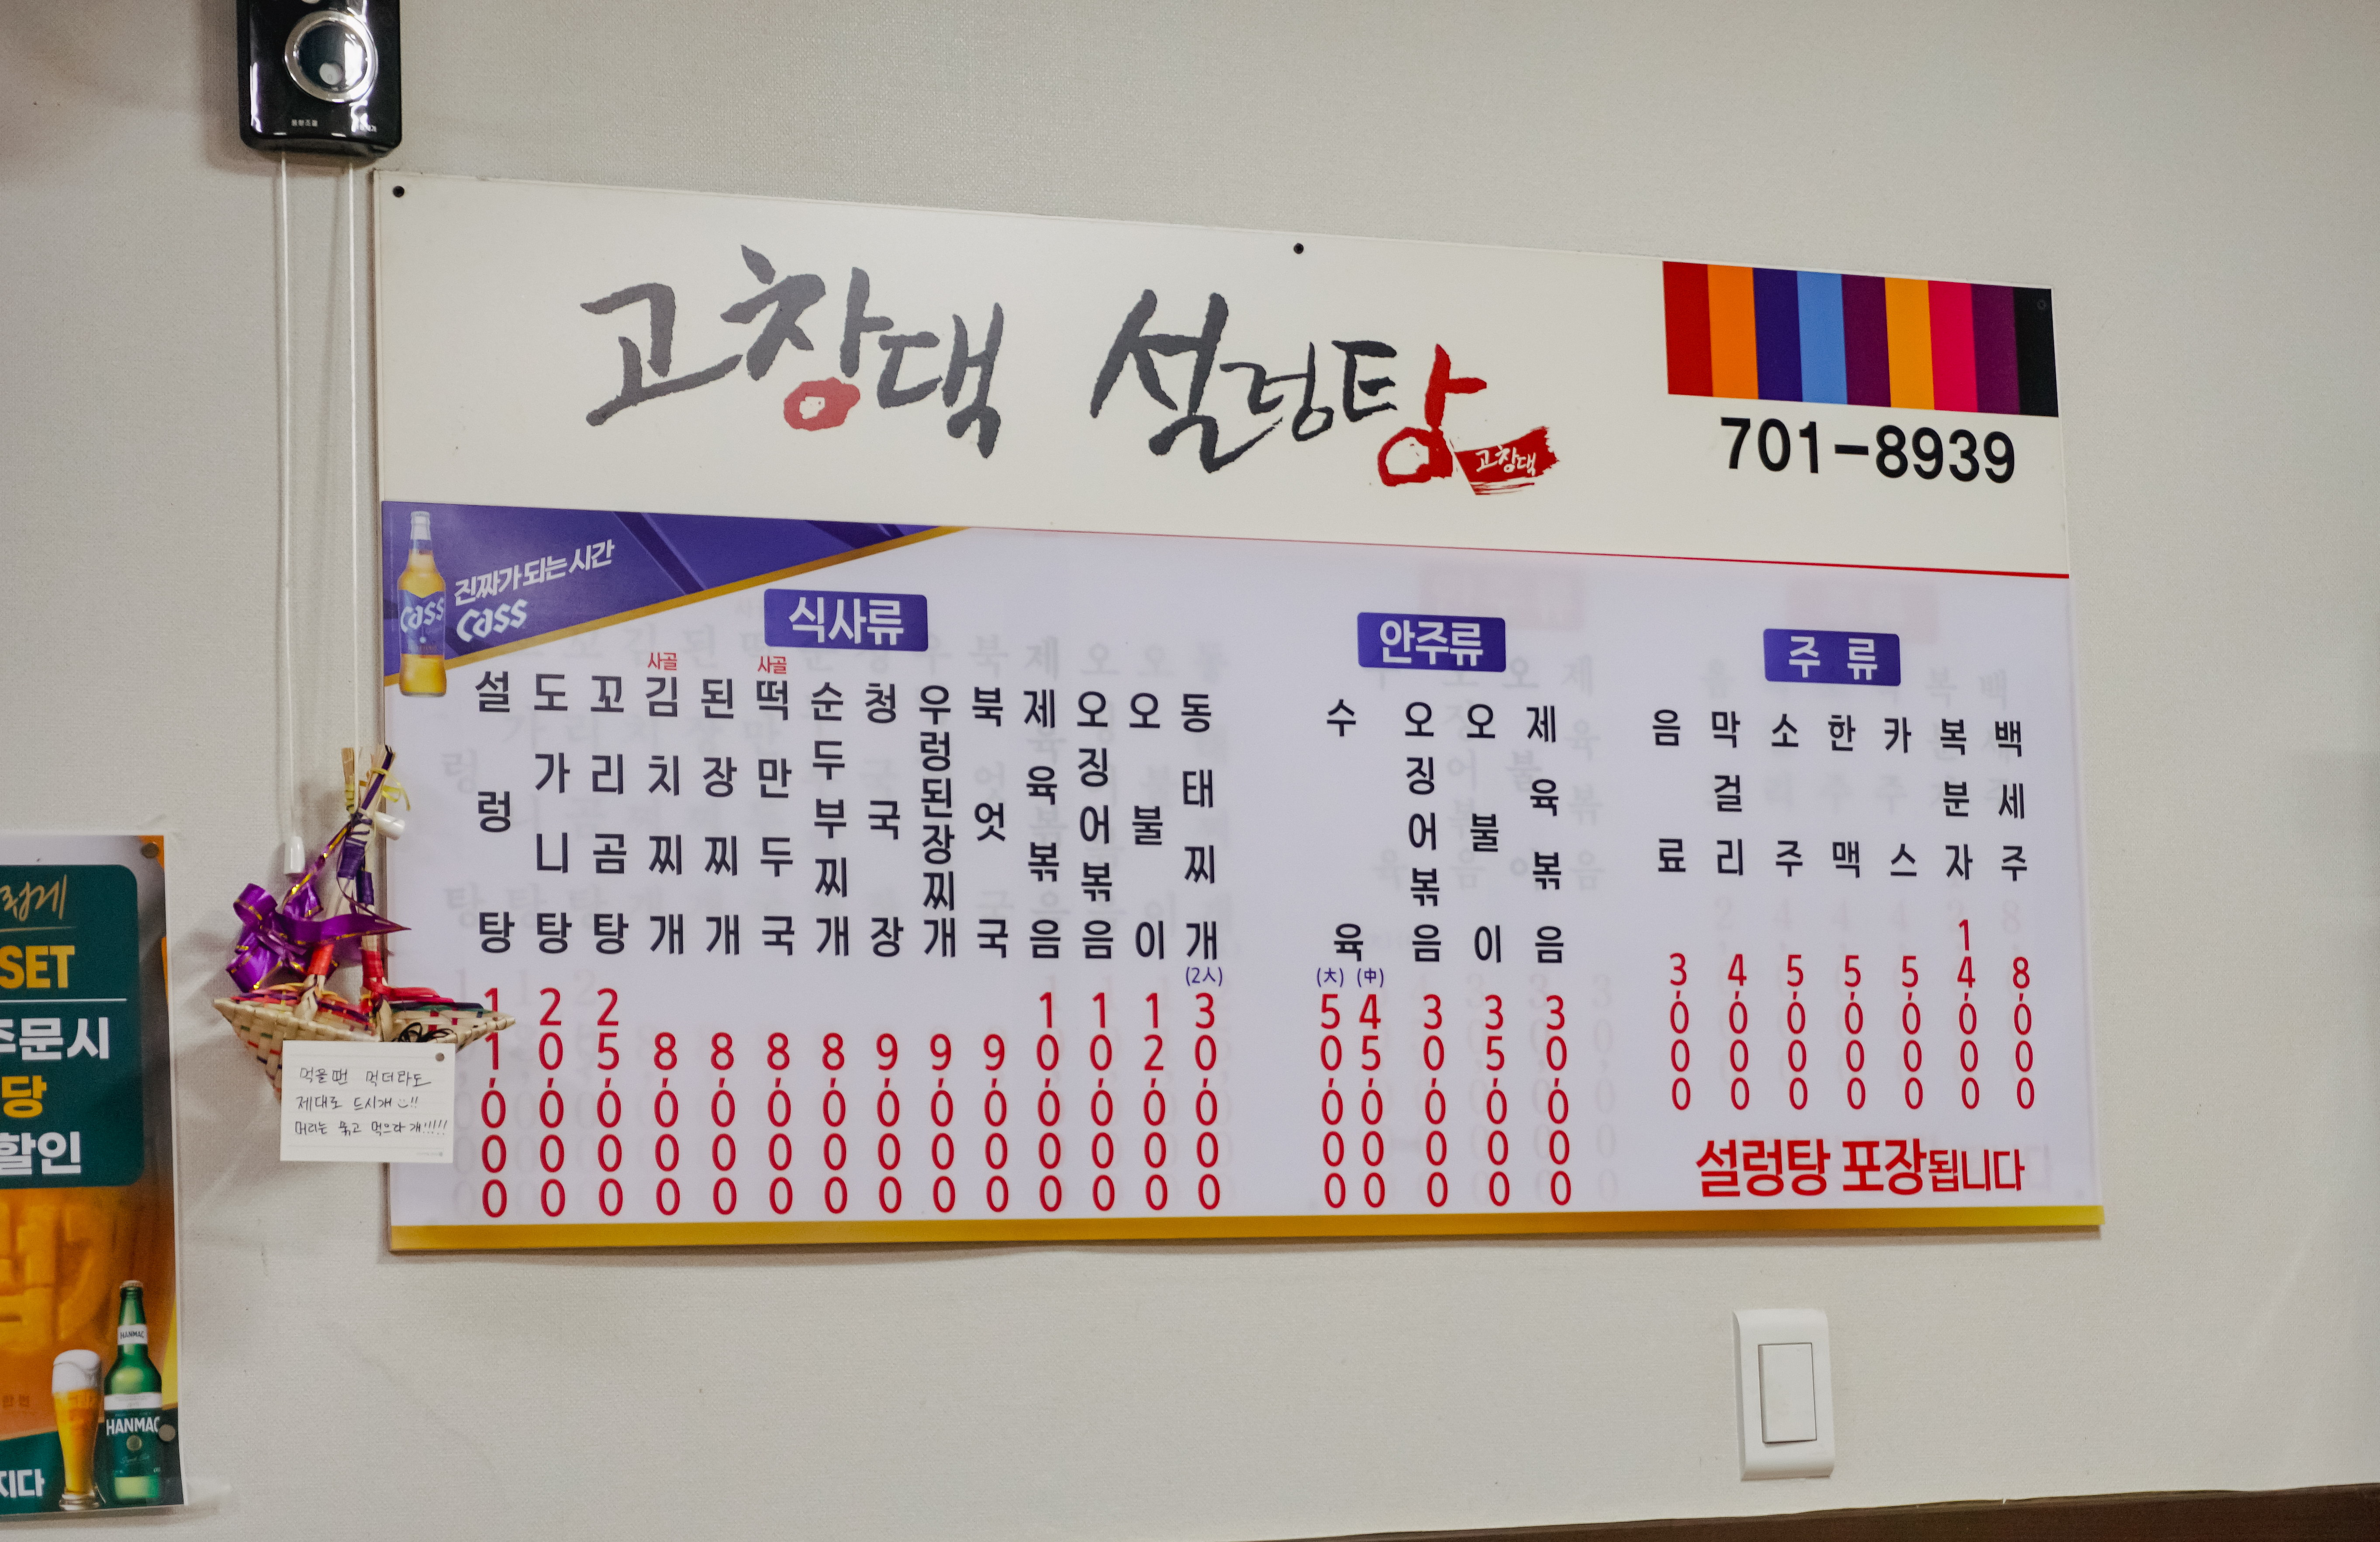 고창댁 설렁탕
고창댁
701-8939
진짜가 되는 시간
cass
cass
식사류
설렁탕 11,000
도가니탕 20,000
꼬리곰탕 25,000
사골
김치찌개 8,000
된장찌개 8,000
사골
떡만두국 8,000
순두부찌개 8,000
청국장 9,000
우렁된장찌개 9,000
북엇국 9,000
제육볶음 10,000
오징어볶음 10,000
오불이 12,000
동태찌개 (2人) 30,000
안주류
수육 (大) 50,000 (中) 45,000
오징어볶음 30,000
오불이 35,000
제육볶음 30,000
주 류
음료 3,000
막걸리 4,000
소주 5,000
한맥 5,000
카스 5,000
복분자 14,000
백세주 8,000
설렁탕 포장됩니다
먹을땐 먹더라도
제대로 드시개 !!
머리는 묶고 먹으라개!!!!!
SET
주문시
당
할인
HANMAC
HANMAC
지다